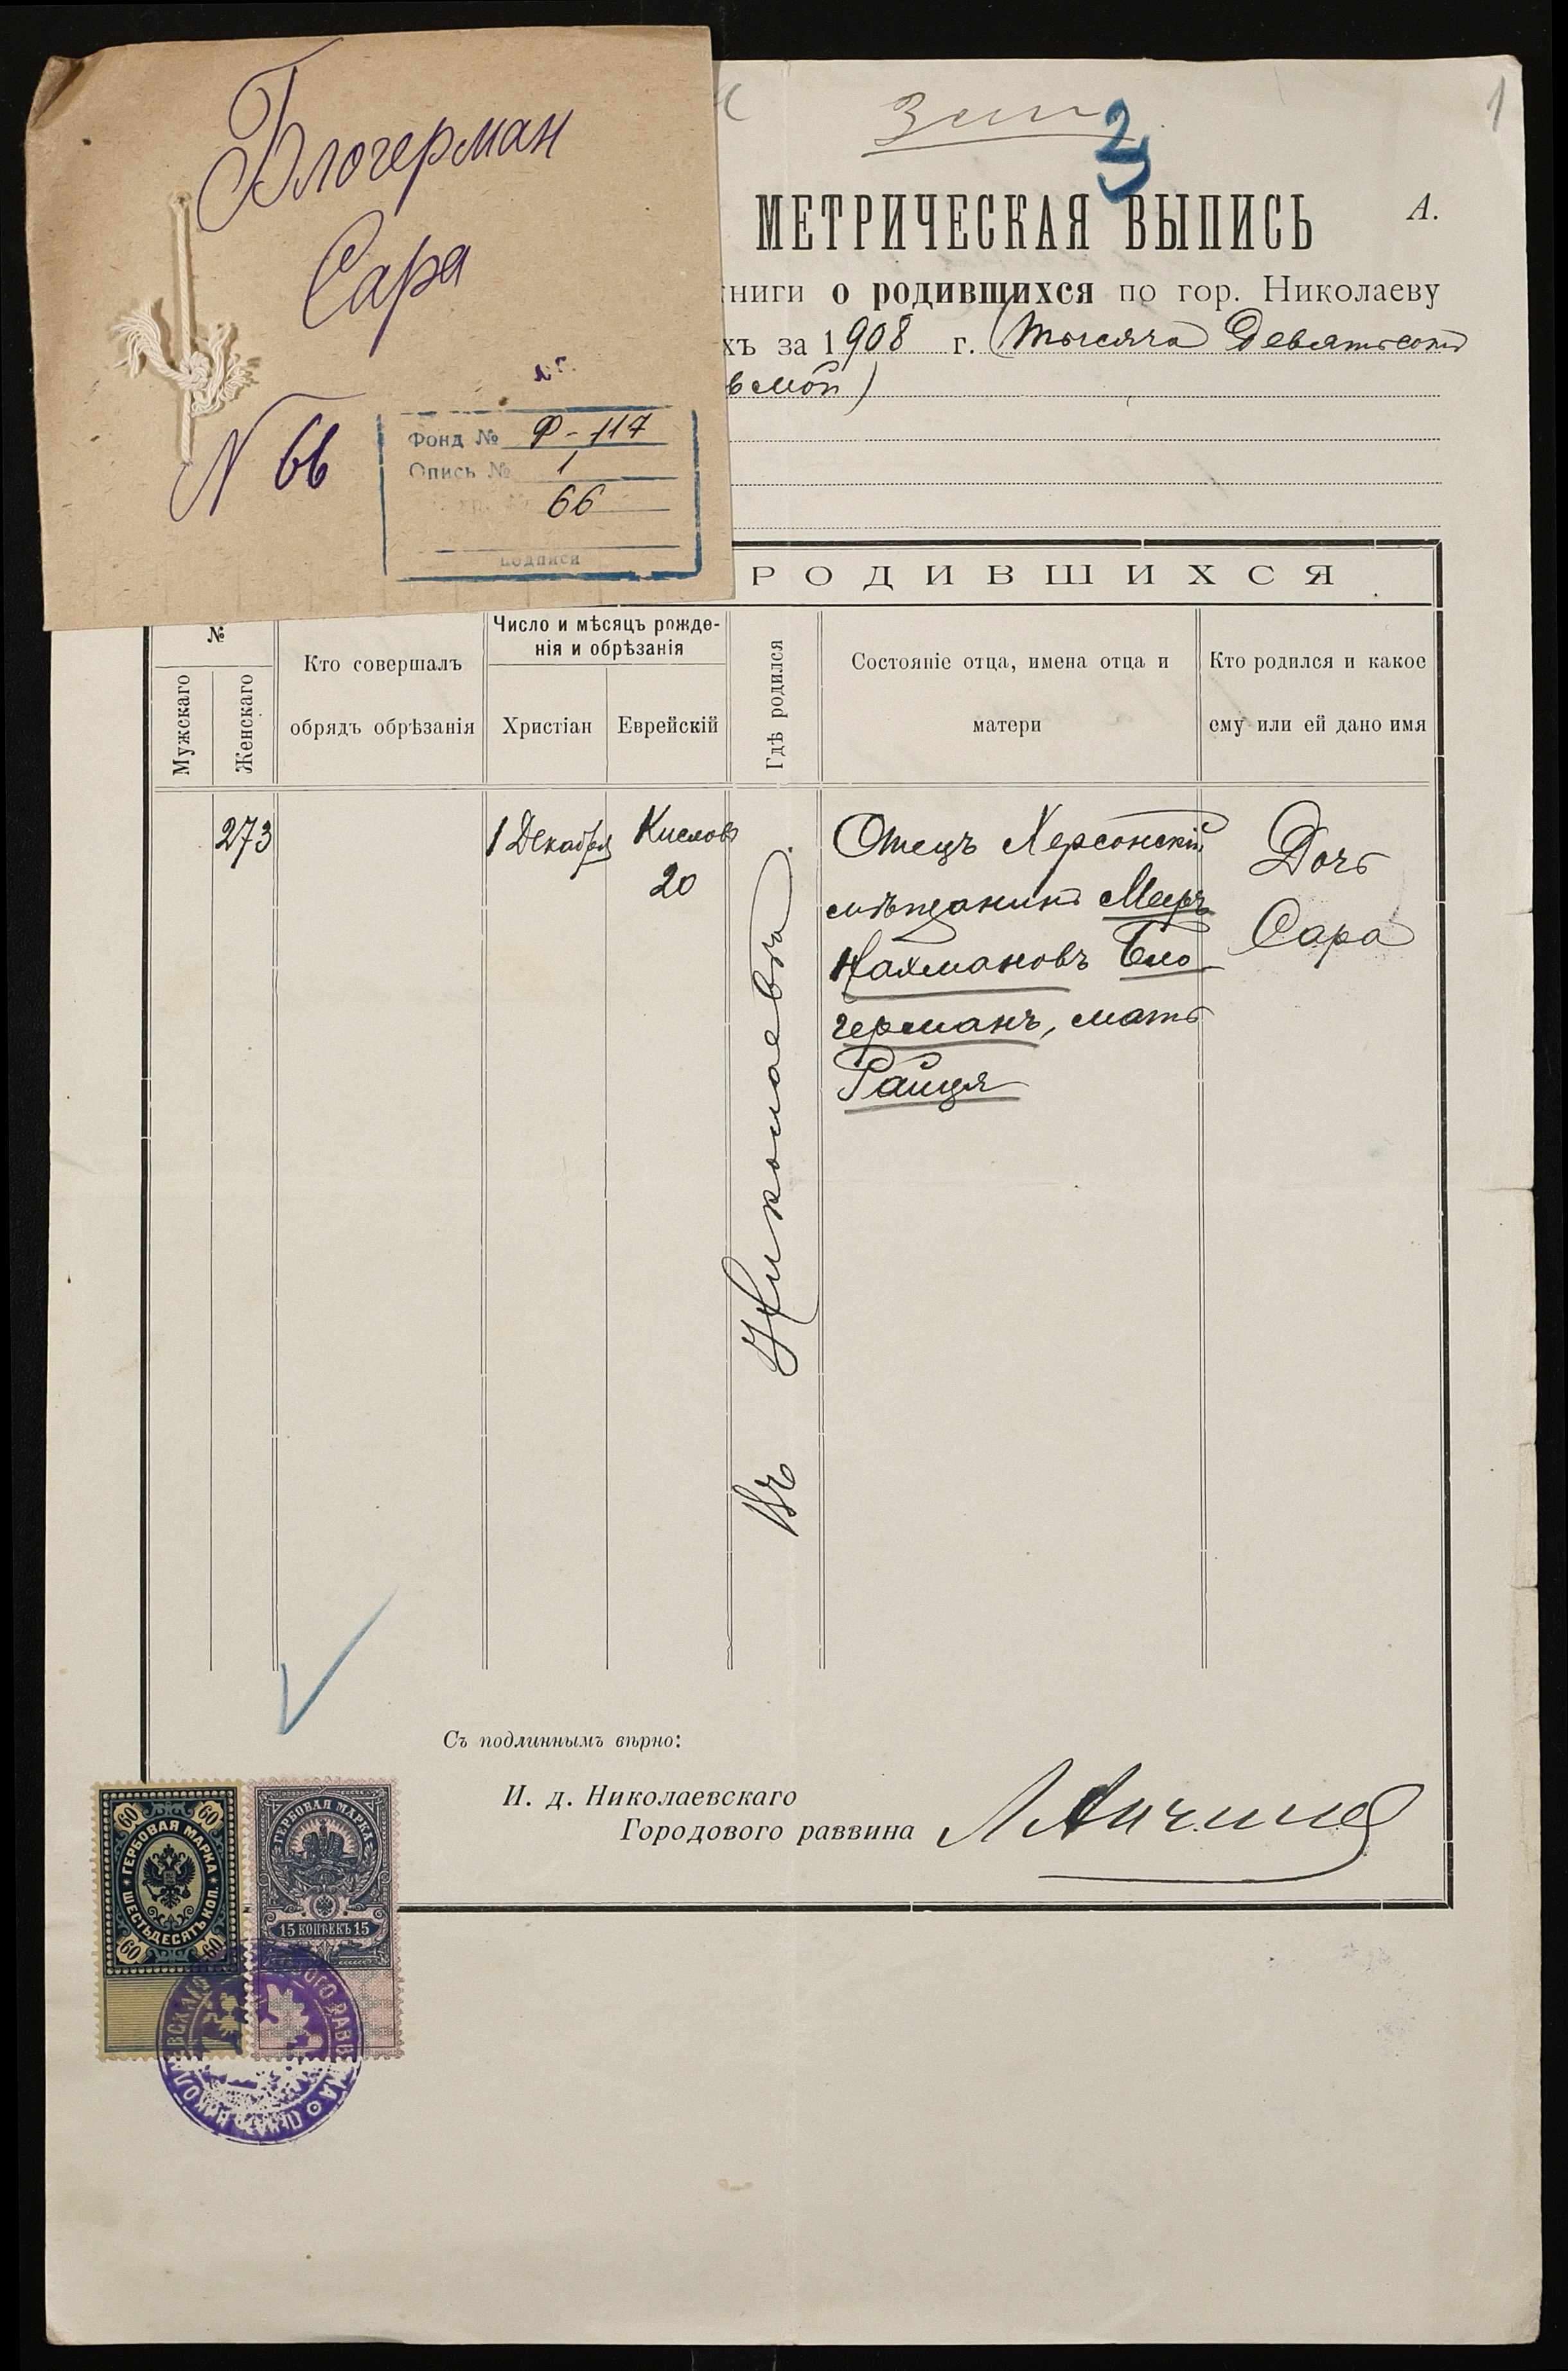 Блогерман
Сара
N 66
Фонд № Ф-117
Опись № 1
66
подписи
2
1
МЕТРИЧЕСКАЯ ВЫПИСЬ
А.
ниги о родившихся по гор. Николаеву
хъ за 1908 г. (Тысяча Девятьсотъ
ьмой)
РОДИВШИХСЯ
№
Мужскаго
Женскаго
Кто совершалъ
обрядъ обрѣзанія
Число и мѣсяцъ рожде-
нія и обрѣзанія
Христіан
Еврейскій
Гдѣ родился
Состояніе отца, имена отца и
матери
Кто родился и какое
ему или ей дано имя
273
1 Декабря
Кислов
20
Въ Николаевѣ
Отецъ Херсонскій
мѣщанинъ Меръ
Нахмановъ Бло
германъ, мать
Раиця
Дочь
Сара
Съ подлиннымъ вѣрно:
И. д. Николаевскаго
Городового раввина
60 60
ГЕРБОВАЯ МАРКА
ШЕСТЬДЕСЯТЪ КОП.
60 60
ГЕРБОВАЯ МАРКА
15 КОПѢЕКЪ 15